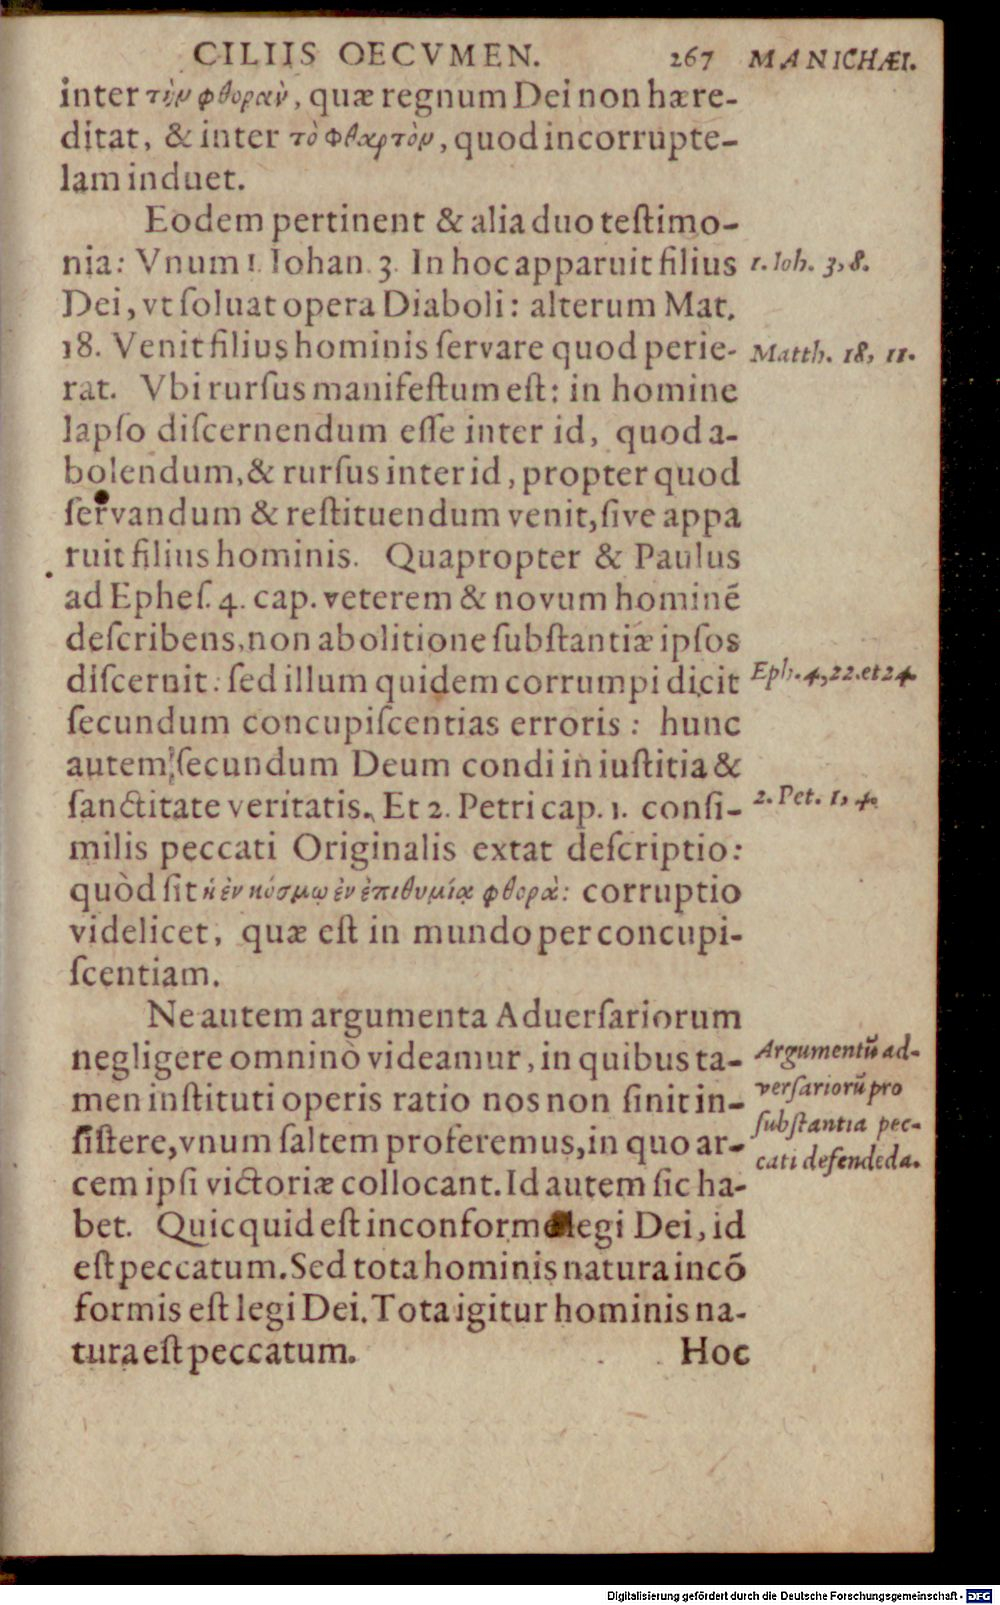 CILIIS OECVMEN. 267 MANICHÆI.
inter τὴν φθορὰν, quæ regnum Dei non hære-
ditat, & inter τὸ φθαρτὸν, quod incorrupte-
lam induet.
Eodem pertinent & alia duo teſtimo-
nia: Vnum 1. Iohan. 3. In hoc apparuit filius
1. Ioh. 3, 8.
Dei, vt ſoluat opera Diaboli: alterum Mat.
18. Venit filius hominis ſervare quod perie-
Matth. 18, 11.
rat. Vbi rurſus manifeſtum eſt: in homine
lapſo diſcernendum eſſe inter id, quod a-
bolendum, & rurſus inter id, propter quod
ſervandum & reſtituendum venit, ſive appa
ruit filius hominis. Quapropter & Paulus
ad Epheſ. 4. cap. veterem & novum hominẽ
deſcribens, non abolitione ſubſtantiæ ipſos
diſcernit: ſed illum quidem corrumpi dicit
Eph. 4, 22. et 24.
ſecundum concupiſcentias erroris: hunc
autem ſecundum Deum condi in iuſtitia &
ſanctitate veritatis. Et 2. Petri cap. 1. conſi-
2. Pet. 1, 4.
milis peccati Originalis extat deſcriptio:
quòd ſit ἡ ἐν κόσμῳ ἐν ἐπιθυμίᾳ φθορὰ: corruptio
videlicet, quæ eſt in mundo per concupi-
ſcentiam.
Ne autem argumenta Aduerſariorum
negligere omninò videamur, in quibus ta-
men inſtituti operis ratio nos non ſinit in-
ſiſtere, vnum ſaltem proferemus, in quo ar-
cem ipſi victoriæ collocant. Id autem ſic ha-
Argumentũ ad-
verſariorũ pro
ſubſtantia pec-
cati defendeda.
bet. Quicquid eſt inconforme legi Dei, id
eſt peccatum. Sed tota hominis natura incõ
formis eſt legi Dei. Tota igitur hominis na-
tura eſt peccatum.
Hoc
Digitalisierung gefördert durch die Deutsche Forschungsgemeinschaft - DFG